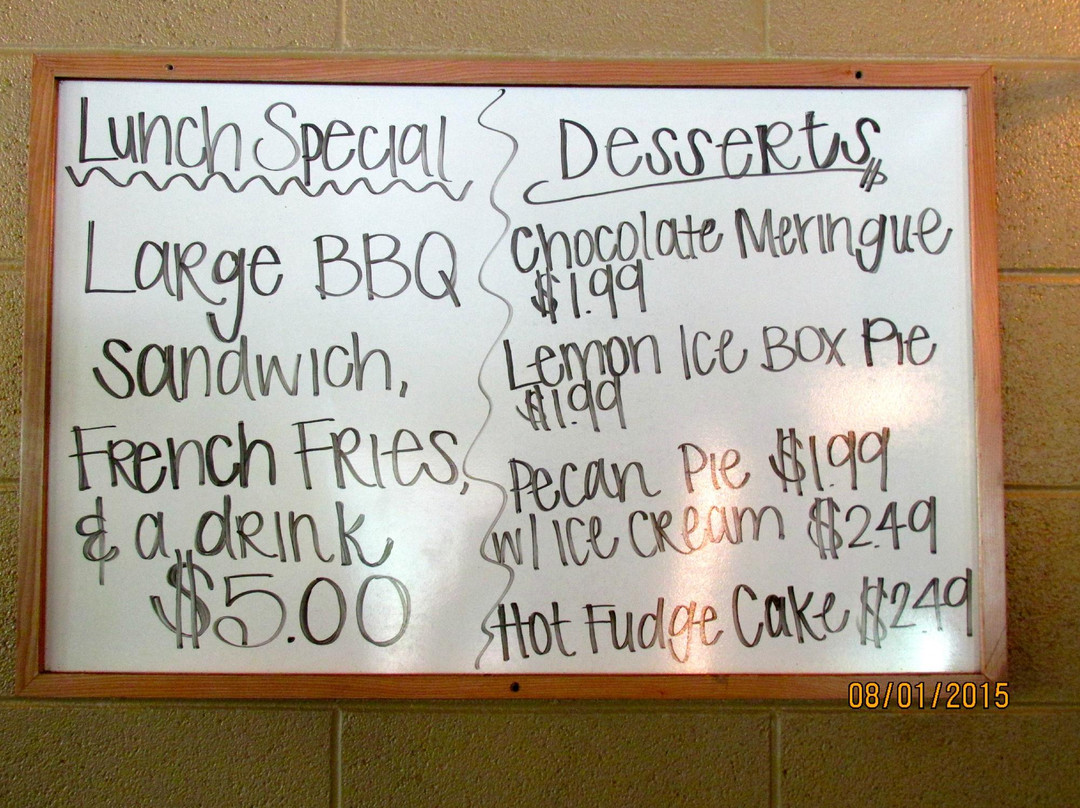 Lunch Special
Large BBQ
Sandwich,
French Fries,
& a drink
$5.00
Desserts
Chocolate Meringue
$1.99
Lemon Ice Box Pie
$1.99
Pecan Pie $1.99
w/ Ice cream $2.49
Hot Fudge Cake $2.49
08/01/2015